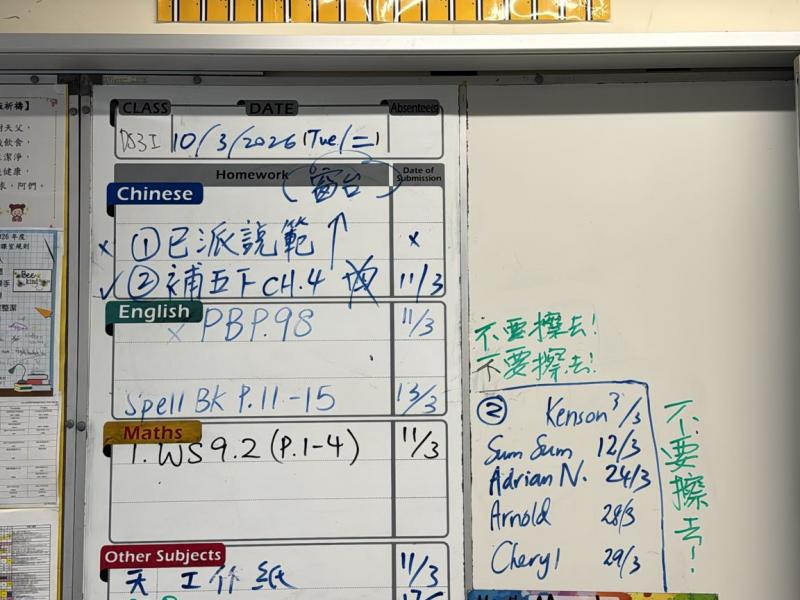 CLASS DATE Absentees
10/3/2026 (Tue/二)
Homework (窗台) Date of Submission
Chinese
× ①已派說範 ↑ ×
✓ ②補五下CH.4 11/3
English
× PBP.98 11/3
Spell BK P.11-15 13/3
Maths
1. WS 9.2 (P.1-4) 11/3
Other Subjects
天 工作紙 11/3
不要擦去!
不要擦去!
② Kenson 3/3
Sum Sum 12/3
Adrian N. 24/3
Arnold 28/3
Cheryl 29/3
不要擦去!
Bee kind